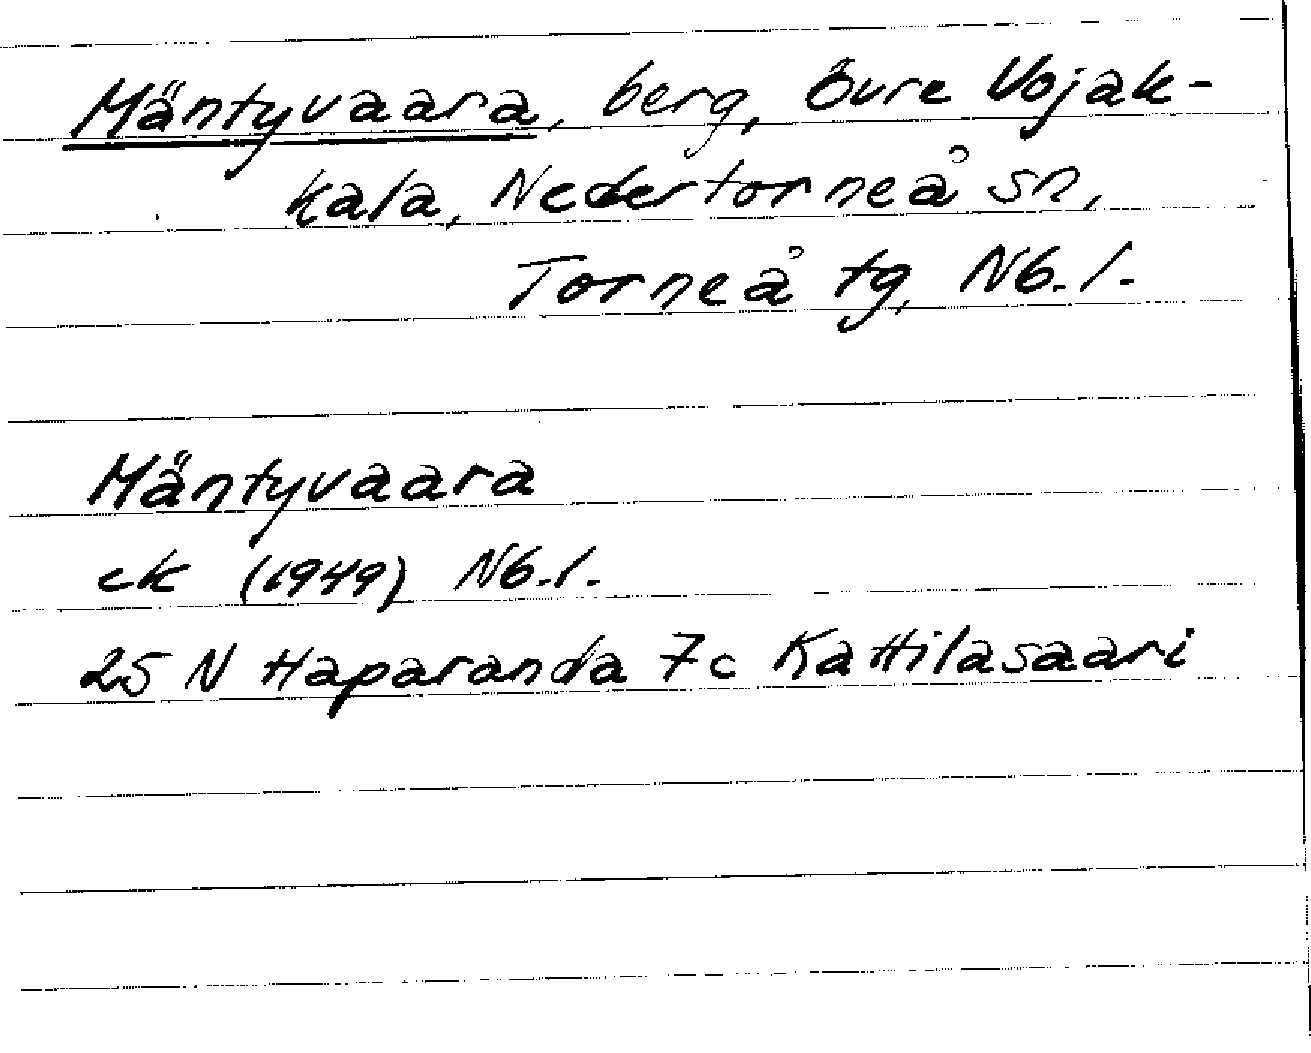 Mäntyvaara, berg, Övre Vojak-
kala, Nedertorneå sn,
Torneå tg, Nb. l.
Mäntyvaara
ek (1949) Nb. l.
25 N Haparanda 7c Kattilasaari